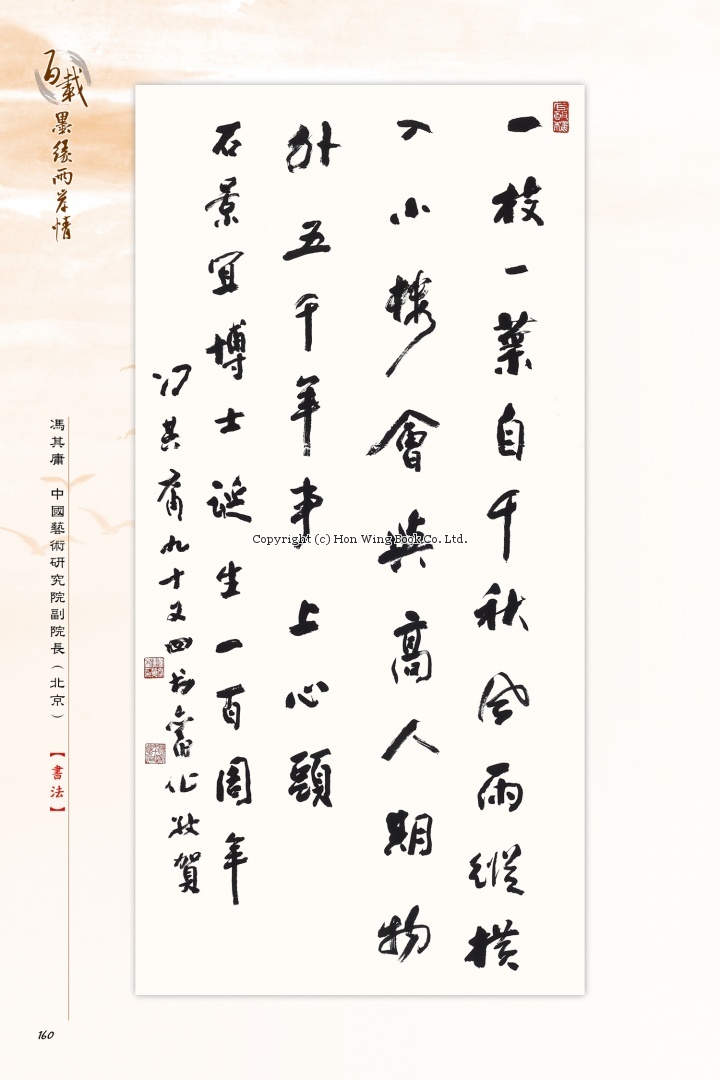 百載墨緣兩岸情
一枝一葉自千秋風雨縱横
入小樓會與高人期物
外五千年事上心頭
石景宜博士誕生一百周年
馮其庸九十又四書舊作敬賀
馮其庸 中國藝術研究院副院長（北京）【書法】
Copyright (c) Hon Wing Book Co. Ltd.
160